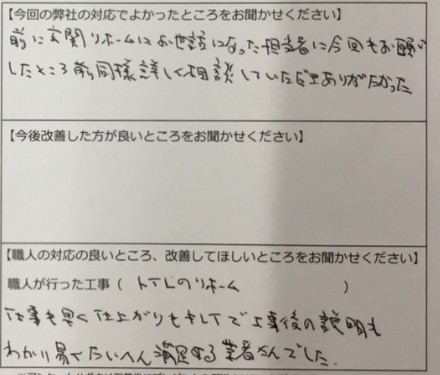 【今回の弊社の対応でよかったところをお聞かせください】
前に玄関リホームにお世話になった担当者に今回もお願い
したところ前回同様詳しく相談していただきありがたかった
【今後改善した方が良いところをお聞かせください】
【職人の対応の良いところ、改善してほしいところをお聞かせください】
職人が行った工事 ( トイレのリホーム )
仕事も早く仕上がりもキレイで工事後の説明も
わかり易くたいへん満足する業者さんでした.